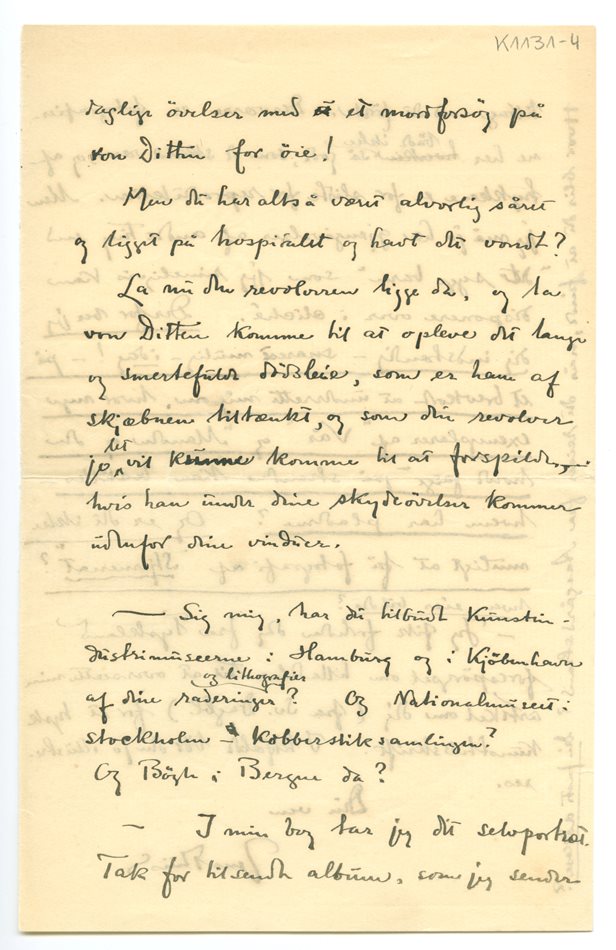 K1131-4
daglige övelser med et mordforsög på
von Ditten for öie!
Men du har altså været alvorlig såret
og ligget på hospitalet og havt det vondt?
La nu den revolveren ligge da, og la
von Ditten komme til at opleve det lange
og smertefulde dödsleie, som er ham af
skjæbnen tiltænkt, og som din revolver
jo let vil komme til at forspilde,
hvis han under dine skydeövelser kommer
udenfor dine vinduer.
— Sig mig, har du tilbudt Kunstin-
dustrimuseerne i Hamburg og i Kjöbenhavn
og lithografier
af dine raderinger? Og Nationalmuseet i
Stockholm – Kobberstiksamlingen?
Og Bögh i Bergen da?
— I min bog tar jeg dit selvportræt.
Tak for tilsendt album, som jeg sender